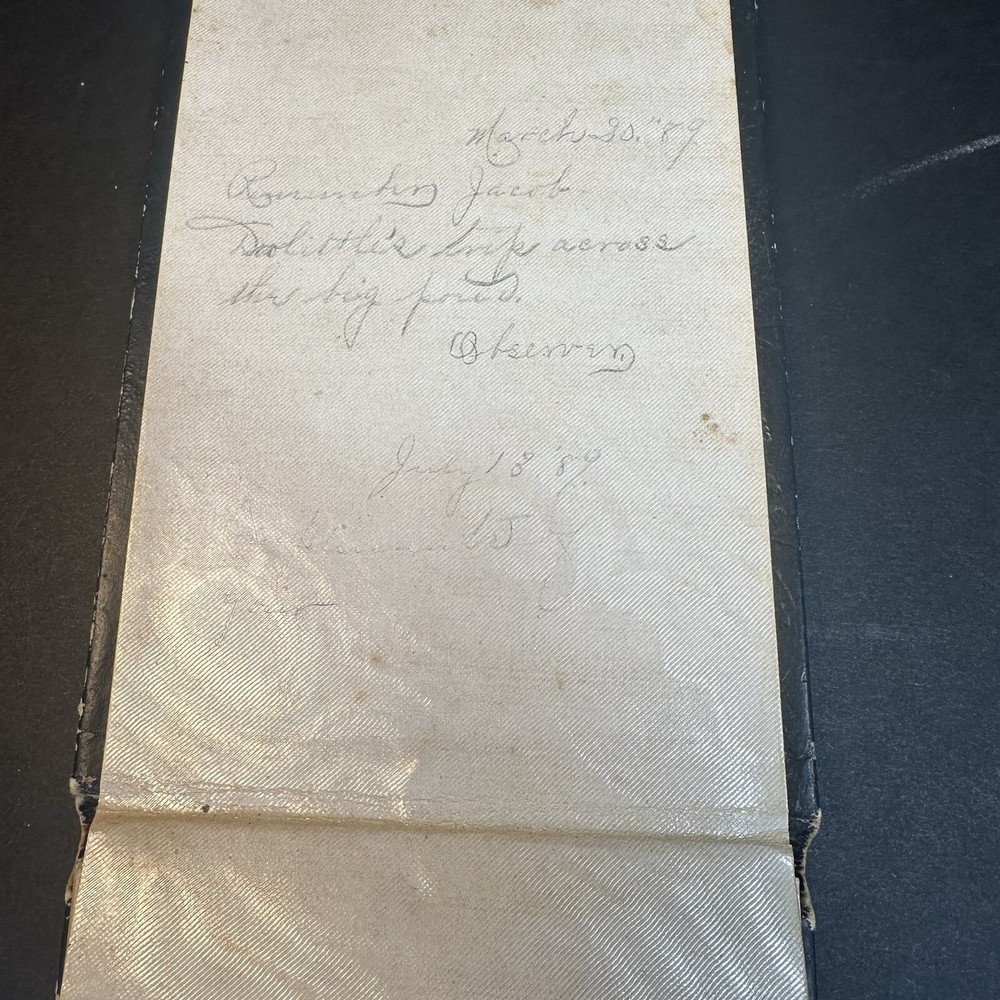 March 20. "89
Remember Jacob
Doolittle's trip across
the big pond.
Observer.
July 13 '89